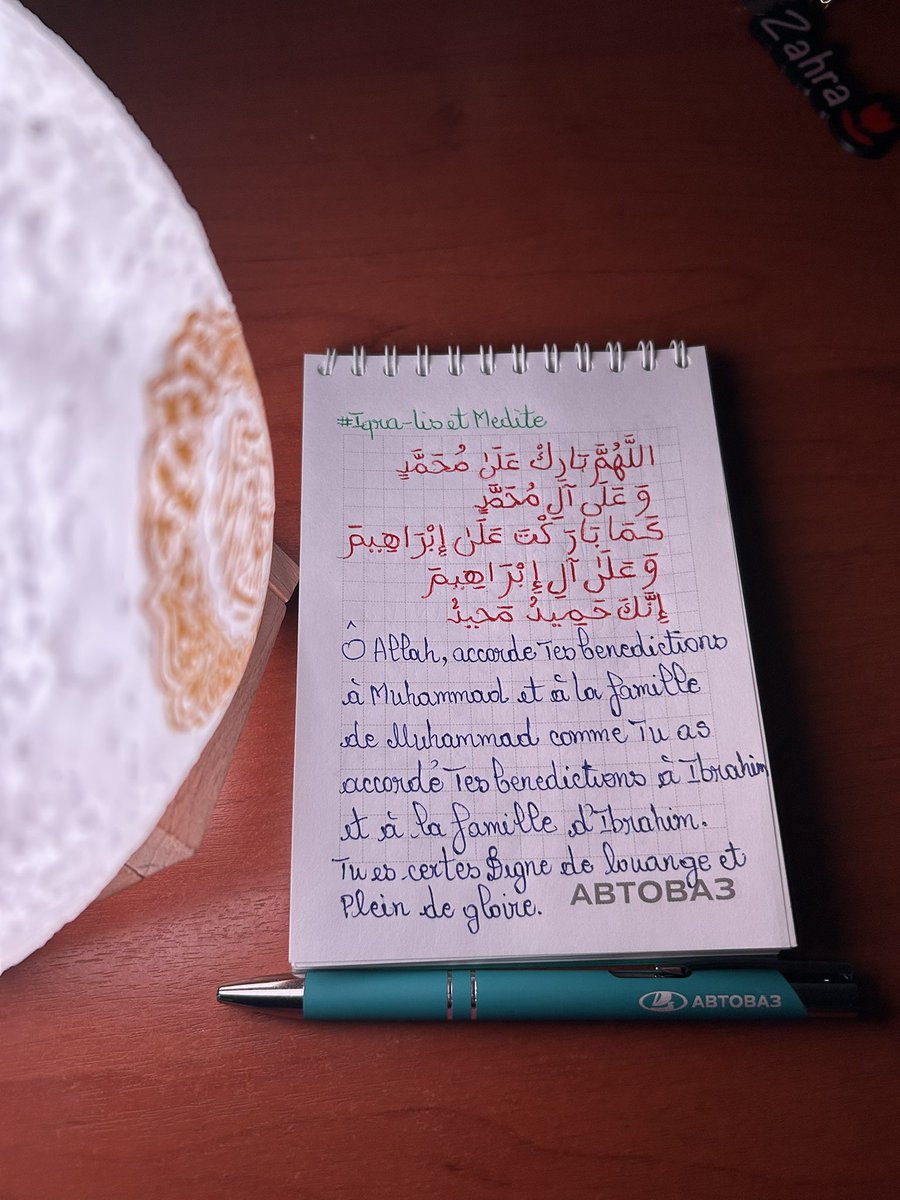 Zahra
#Iqra-lis et Medite
اللَّهُمَّ بَارِكْ عَلَىٰ مُحَمَّدٍ
وَ عَلَى آلِ مُحَمَّدٍ
كَمَا بَارَكْتَ عَلَىٰ إِبْرَاهِيمَ
وَ عَلَىٰ آلِ إِبْرَاهِيمَ
إِنَّكَ حَمِيدٌ مَجِيدٌ
Ô Allah, accorde Tes benedictions
à Muhammad et à la famille
de Muhammad comme Tu as
accordé Tes benedictions à Ibrahim
et à la famille d'Ibrahim.
Tu es certes Digne de louange et
Plein de gloire.
АВТОВАЗ
АВТОВАЗ